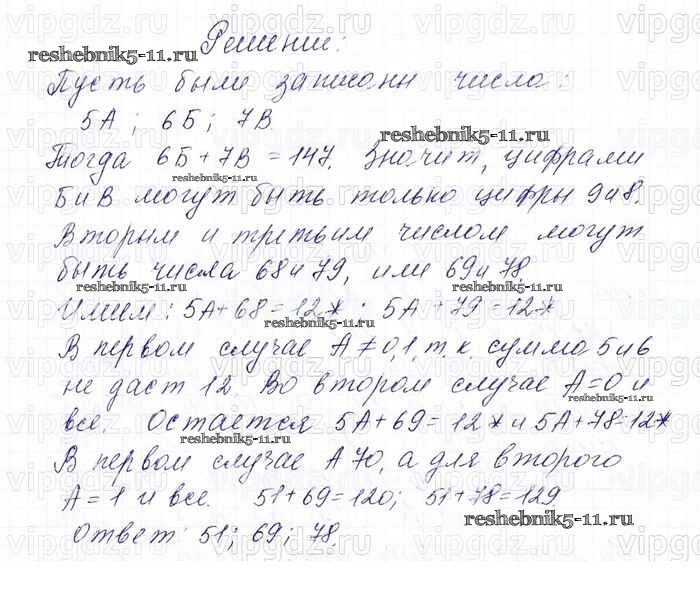 Решение:
reshebnik5-11.ru
Пусть были записаны числа:
5А; 6Б; 7В
reshebnik5-11.ru
Тогда 6Б+7В=147. Значит, цифрами
reshebnik5-11.ru
Б и В могут быть только цифры 9 и 8.
Вторым и третьим числом могут
быть числа 68 и 79, или 69 и 78.
reshebnik5-11.ru
reshebnik5-11.ru
Имеем: 5А+68=12* ; 5А+79=12*
reshebnik5-11.ru
В первом случае А≠0,1, т.к. сумма 5 и 6
не даст 12. Во втором случае А=0 и
все. Остается 5А+69=12* и 5А+78=12*
reshebnik5-11.ru
В первом случае А≠0, а для второго
А=1 и все. 51+69=120; 51+78=129.
reshebnik5-11.ru
Ответ: 51; 69; 78.
vipgdz.ru